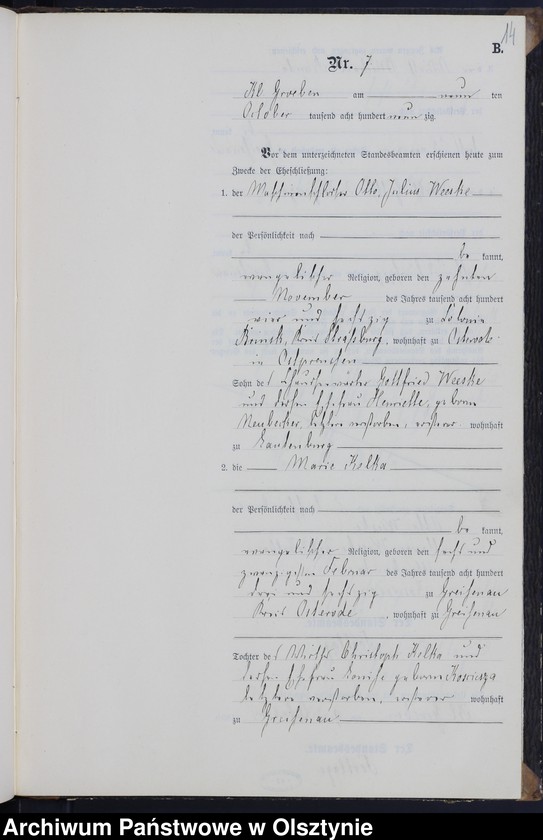 14
B.
Nr. 7
Kl. Groeben am neun ten
October tausend acht hundert neun zig.
Vor dem unterzeichneten Standesbeamten erschienen heute zum
Zwecke der Eheschließung:
1. der Maschinenschlosser Otto, Julius Weeske
der Persönlichkeit nach
be kannt,
evangelischer Religion, geboren den zehnten
November des Jahres tausend acht hundert
vier und sechszig zu Colonie
Kreis Straßburg, wohnhaft zu Osterode
in Ostpreußen
Sohn des Chausseewärter Gottfried Weeske
und dessen Ehefrau Henriette, geboren
Neubecker, letztere verstorben, ersterer wohnhaft
zu Lautenburg
2. die Marie Kolka
der Persönlichkeit nach
be kannt,
evangelischer Religion, geboren den sechs und
zwanzigsten Februar des Jahres tausend acht hundert
drei und sechszig zu Greifenau
Kreis Osterode, wohnhaft zu Greifenau
Tochter des Wirths Christoph Kolka und
dessen Ehefrau Louise geboren
letztere verstorben, ersterer wohnhaft
zu Greifenau
Archiwum Państwowe w Olsztynie